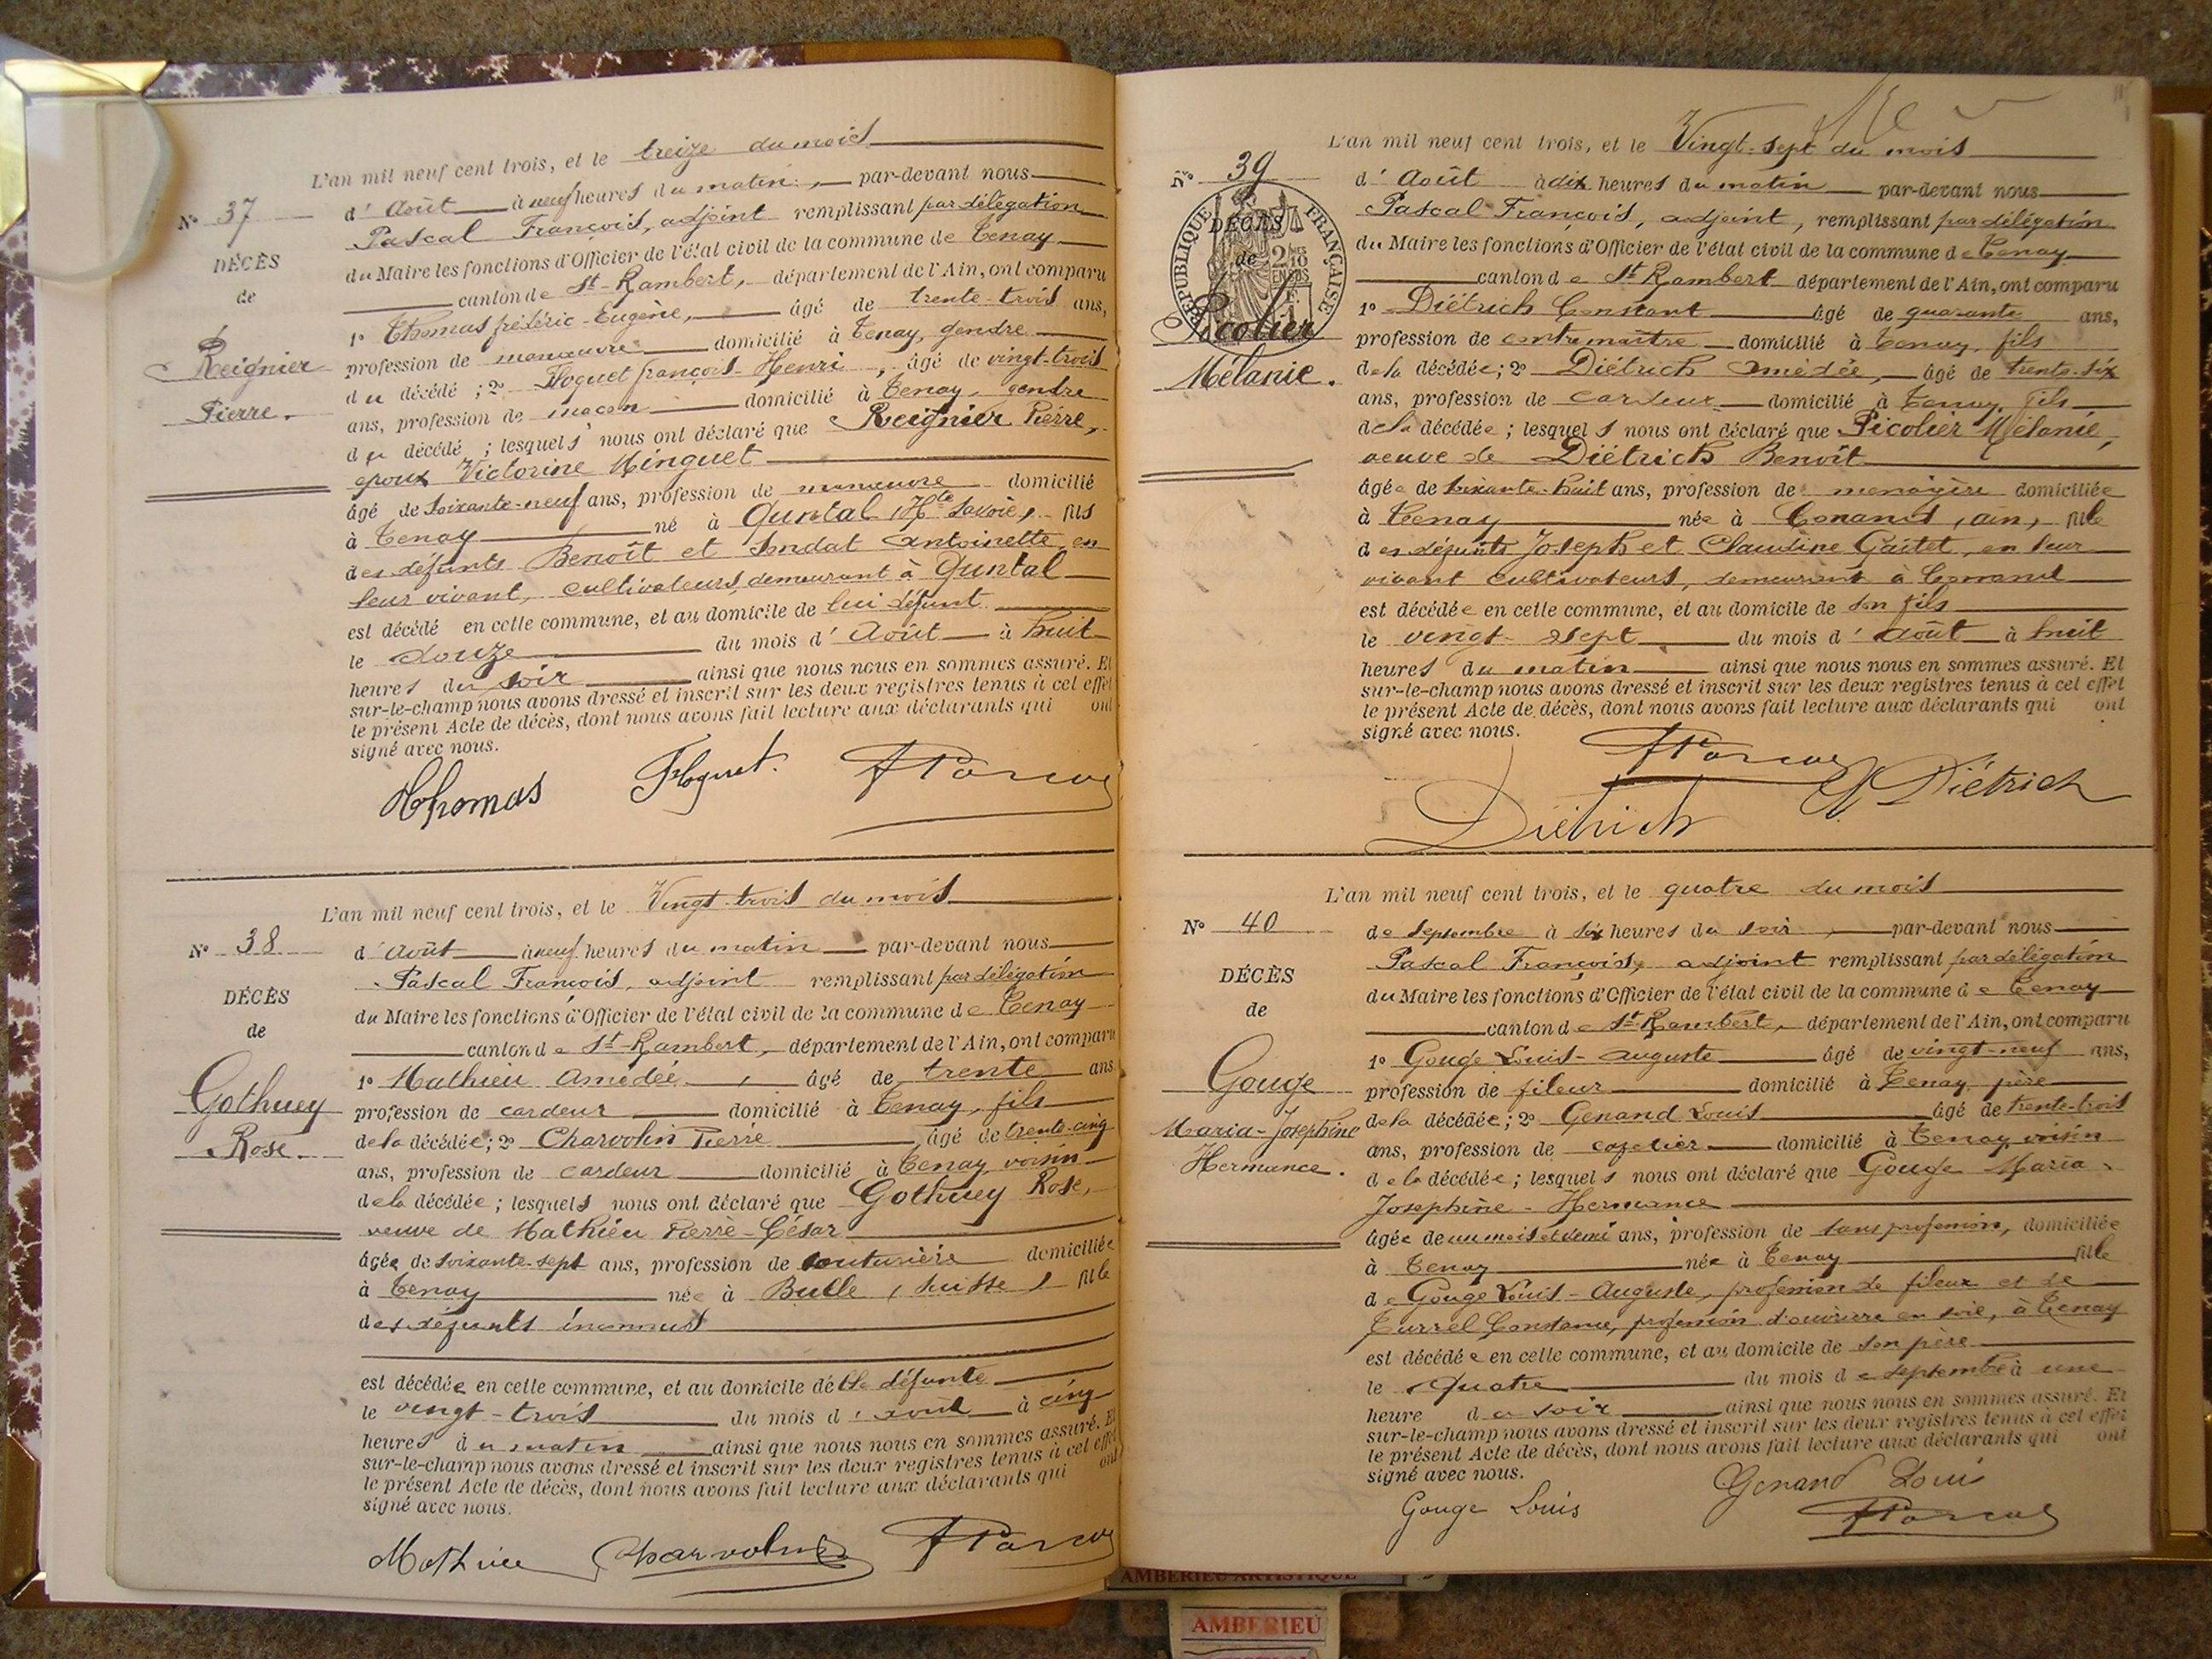 L'an mil neuf cent trois, et le treize du mois
N° 37
d'Août à neuf heures du matin, par-devant nous
Pascal François, adjoint remplissant par délégation
DÉCÈS
du Maire les fonctions d'Officier de l'état civil de la commune de Tenay
de
canton de St-Rambert, département de l'Ain, ont comparu
1° Thomas frédéric-Eugène, âgé de trente-trois ans,
Reignier
profession de manœuvre domicilié à Tenay, gendre
du décédé ; 2° Floquet françois-Henri, âgé de vingt-trois
Pierre.
ans, profession de maçon domicilié à Tenay, gendre
du décédé ; lesquels nous ont déclaré que Reignier Pierre,
époux Victorine Minguet
âgé de soixante-neuf ans, profession de manœuvre domicilié
à Tenay né à Quintal (Hte Savoie), fils
des défunts Benoît et Antoinette, en
leur vivant, cultivateurs, demeurant à Quintal
est décédé en cette commune, et au domicile de lui défunt
le douze du mois d'Août à huit
heures du soir ainsi que nous nous en sommes assuré. Et
sur-le-champ nous avons dressé et inscrit sur les deux registres tenus à cet effet
le présent Acte de décès, dont nous avons fait lecture aux déclarants qui ont
signé avec nous.
Thomas Floquet. FPascal
L'an mil neuf cent trois, et le Vingt-trois du mois
N° 38
d'Août à neuf heures du matin par-devant nous
Pascal François, adjoint remplissant par délégation
DÉCÈS
du Maire les fonctions d'Officier de l'état civil de la commune de Tenay
de
canton de St-Rambert, département de l'Ain, ont comparu
1° Mathieu Amédée, âgé de trente ans
Gothuey
profession de cardeur domicilié à Tenay, fils
Rose.
de la décédée ; 2° Charvolin Pierre, âgé de trente-cinq
ans, profession de cardeur domicilié à Tenay voisin
de la décédée ; lesquels nous ont déclaré que Gothuey Rose,
veuve de Mathieu Pierre-César
âgée de soixante-sept ans, profession de couturière domiciliée
à Tenay née à Bulle (Suisse) fille
des défunts inconnus
est décédée en cette commune, et au domicile de elle défunte
le vingt-trois du mois d'août à cinq
heures du matin ainsi que nous nous en sommes assuré. Et
sur-le-champ nous avons dressé et inscrit sur les deux registres tenus à cet effet
le présent Acte de décès, dont nous avons fait lecture aux déclarants qui ont
signé avec nous.
Mathieu Charvolin FPascal
L'an mil neuf cent trois, et le Vingt-sept du mois
N° 39
d'Août à dix heures du matin par-devant nous
RÉPUBLIQUE FRANÇAISE
Pascal François, adjoint, remplissant par délégation
DÉCÈS
du Maire les fonctions d'Officier de l'état civil de la commune de Tenay
de
canton de St Rambert département de l'Ain, ont comparu
1° Diétrich Constant âgé de quarante ans,
Picolier
profession de contremaître domicilié à Tenay, fils
Mélanie.
de la décédée ; 2° Diétrich Amédée, âgé de trente-six
ans, profession de cardeur domicilié à Tenay, fils
de la décédée ; lesquels nous ont déclaré que Picolier Mélanie,
veuve de Diétrich Benoît
âgée de soixante-huit ans, profession de ménagère domiciliée
à Tenay née à Conand (Ain), fille
des défunts Joseph et Claudine Gaitet, en leur
vivant cultivateurs, demeurant à Conand
est décédée en cette commune, et au domicile de son fils
le vingt-sept du mois d'août à huit
heures du matin ainsi que nous nous en sommes assuré. Et
sur-le-champ nous avons dressé et inscrit sur les deux registres tenus à cet effet
le présent Acte de décès, dont nous avons fait lecture aux déclarants qui ont
signé avec nous.
FPascal
Diétrich Diétrich
L'an mil neuf cent trois, et le quatre du mois
N° 40
de septembre à six heures du soir, par-devant nous
Pascal François, adjoint remplissant par délégation
DÉCÈS
du Maire les fonctions d'Officier de l'état civil de la commune de Tenay
de
canton de St-Rambert, département de l'Ain, ont comparu
1° Gouge Louis-Auguste âgé de vingt-neuf ans,
Gouge
profession de fileur domicilié à Tenay, père
Maria-Joséphine
de la décédée ; 2° Genand Louis âgé de trente-trois
Hermance.
ans, profession de cafetier domicilié à Tenay voisin
de la décédée ; lesquels nous ont déclaré que Gouge Maria
Joséphine-Hermance
âgée de un mois et demi ans, profession de sans profession, domiciliée
à Tenay née à Tenay fille
de Gouge Louis-Auguste, profession de fileur et de
Turrel Constance, profession d'ouvrière en soie, à Tenay
est décédée en cette commune, et au domicile de son père
le quatre du mois de septembre à une
heure du soir ainsi que nous nous en sommes assuré. Et
sur-le-champ nous avons dressé et inscrit sur les deux registres tenus à cet effet
le présent Acte de décès, dont nous avons fait lecture aux déclarants qui ont
signé avec nous.
Gouge Louis Genand Louis
FPascal
AMBERIEU ARTISTIQUE
AMBERIEU